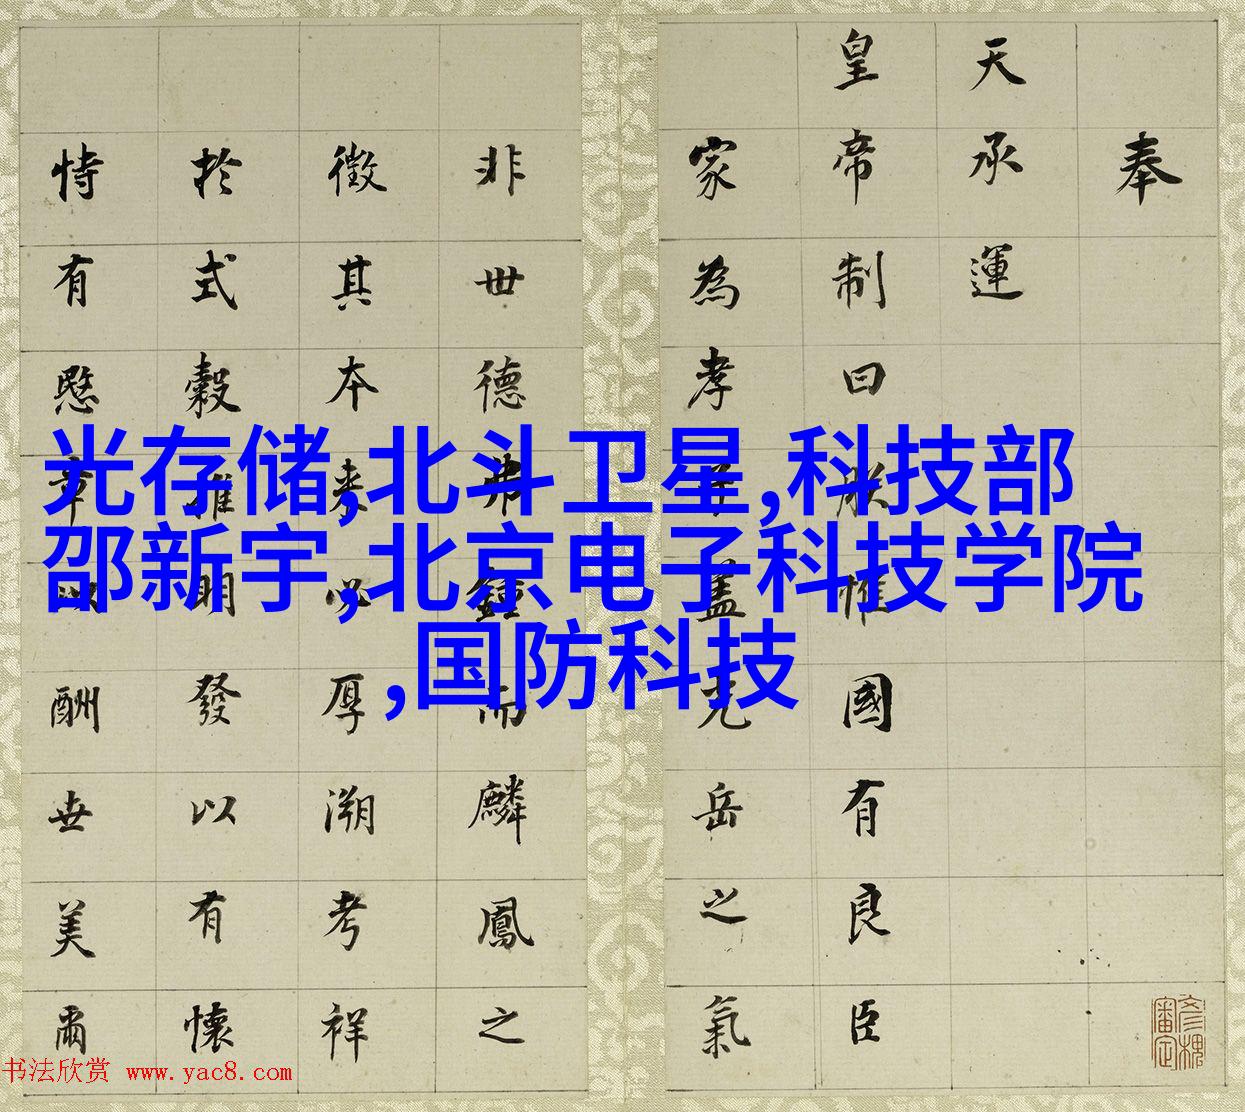 奉
天承運
皇帝制曰朕惟國有良臣
家為孝子蓋光岳之氣
非世德弗鍾而麟鳳之
徵其本來必厚溯考祥
於式穀推明發以有懷
有愍章酬世美爾
光存储,北斗卫星,科技部
邵新宇,北京电子科技学院
,国防科技
书法欣赏 www.yac8.com